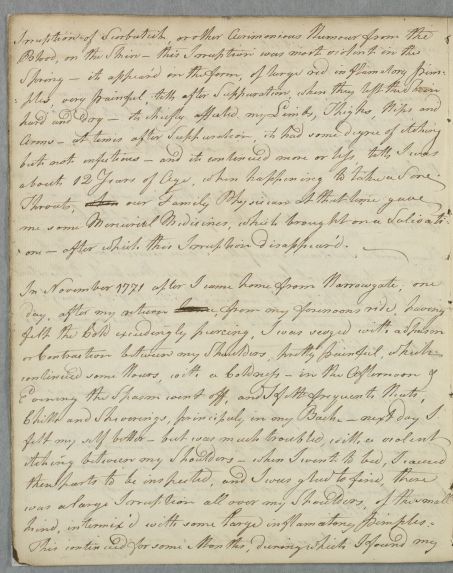 Irruption of Scorbutick, or other Acrimonious Humour from the
Blood, on the Skin – this Irruption was most violent in the
Spring – it appeared in the form, of large red inflamatory Pim-
ples, very painful, till after Suppuration, when they left the Skin
hard and dry – it chiefly affected my Limbs, Thighs, Hips and
Arms – at times after Suppuration it had some degree of itching
but not infectious – and it continued more or less, till I was
about 12 Years of Age, when happening to take a Sore
Throat, our Family Physician at that time gave
me some Mercurial Medicines, which brought on a Salivati-
on – after which this Irruption disappear'd.
In November 1771 after I came home from Harrowgate, one
day, after my return from my forenoons ride, having
felt the Cold exceedingly piercing, I was seazed with a Spasm
or Contraction between my Shoulders, pretty painful, which
continued some Hours, with a Coldness – in the Afternoon &
Evening the Spasm went off, and I felt frequent Heats,
Chills and Shiverings, principaly in my Back – next day I
felt my self better – but was much troubled, with a violent
itching between my Shoulders – when I went to bed, I caused
the parts to be inspected, and I was glad to find, there
was a large Irruption all over my Shoulders, of the small
kind, intermix'd with some large inflamatory Pimples.
This continued for some Months, during which I found my